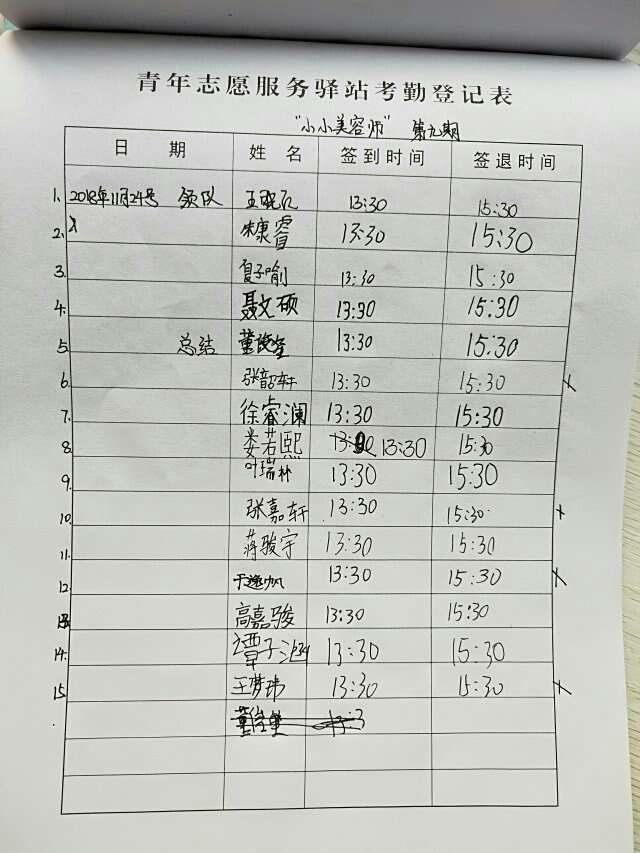 青年志愿服务驿站考勤登记表
"小小美容师" 第九期
日 期 姓 名 签到时间 签退时间
1. 2018年11月24号 领队 13:30 15:30
2. 朱康睿 13:30 15:30
3. 夏子喻 13:30 15:30
4. 聂文硕 13:30 15:30
5. 总结 13:30 15:30
6. 张韶轩 13:30 15:30
7. 徐睿澜 13:30 15:30
8. 娄若熙 13:30 15:30
9. 叶瑞林 13:30 15:30
10. 张嘉轩 13:30 15:30
11. 蒋骏宇 13:30 15:30
12. 于逸帆 13:30 15:30
13 高嘉骏 13:30 15:30
14. 谭子涵 13:30 15:30
15. 王梦玮 13:30 15:30